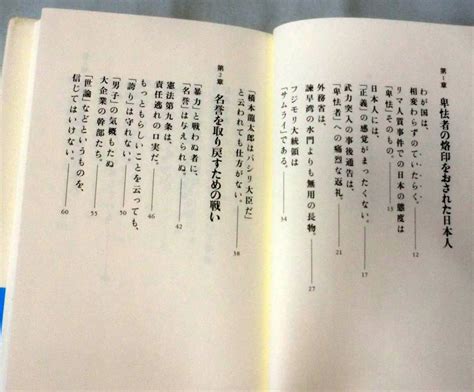 第1章 卑怯者の烙印をおされた日本人
わが国は、
相変わらずのていたらく。 12
リマ人質事件での日本の態度は
「卑怯」そのもの。 15
日本人には、
「正義」の感覚がまったくない。 17
武力突入の事後通告は、
「卑怯者」への痛烈な返礼。 21
外務省は、
諫早湾の水門よりも無用の長物。 27
フジモリ大統領は
「サムライ」である。 34
第2章 名誉を取り戻すための戦い
「橋本龍太郎はパシリ大臣だ」
と云われても仕方がない。 38
「暴力」と戦わぬ者に、
「名誉」は与えられぬ。 42
憲法第九条は、
責任逃れの口実だ。 46
もっともらしいことを云っても、
「誇り」は守れない。 50
「男子」の気概もたぬ
大企業の幹部たち。 55
「世論」などというものを、
信じてはいけない。 60